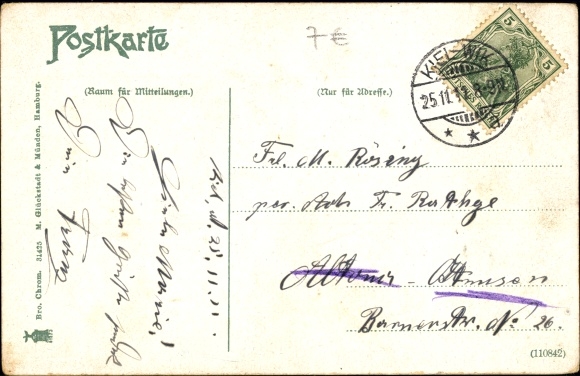 Postkarte
7 €
(Raum für Mitteilungen.)
(Nur für Adresse.)
KIEL-WIK
25.11.
5
5
Kiel, d. 25.11.11.
Liebe Marie!
Die besten Grüße
Dein
Frl. M. Rösing
per. Adr. Fr. Rathge
Altona - Ottensen
Barnerstr. No 26.
Bro. Chrom. 31425 M. Glückstadt & Münden, Hamburg.
(110842)